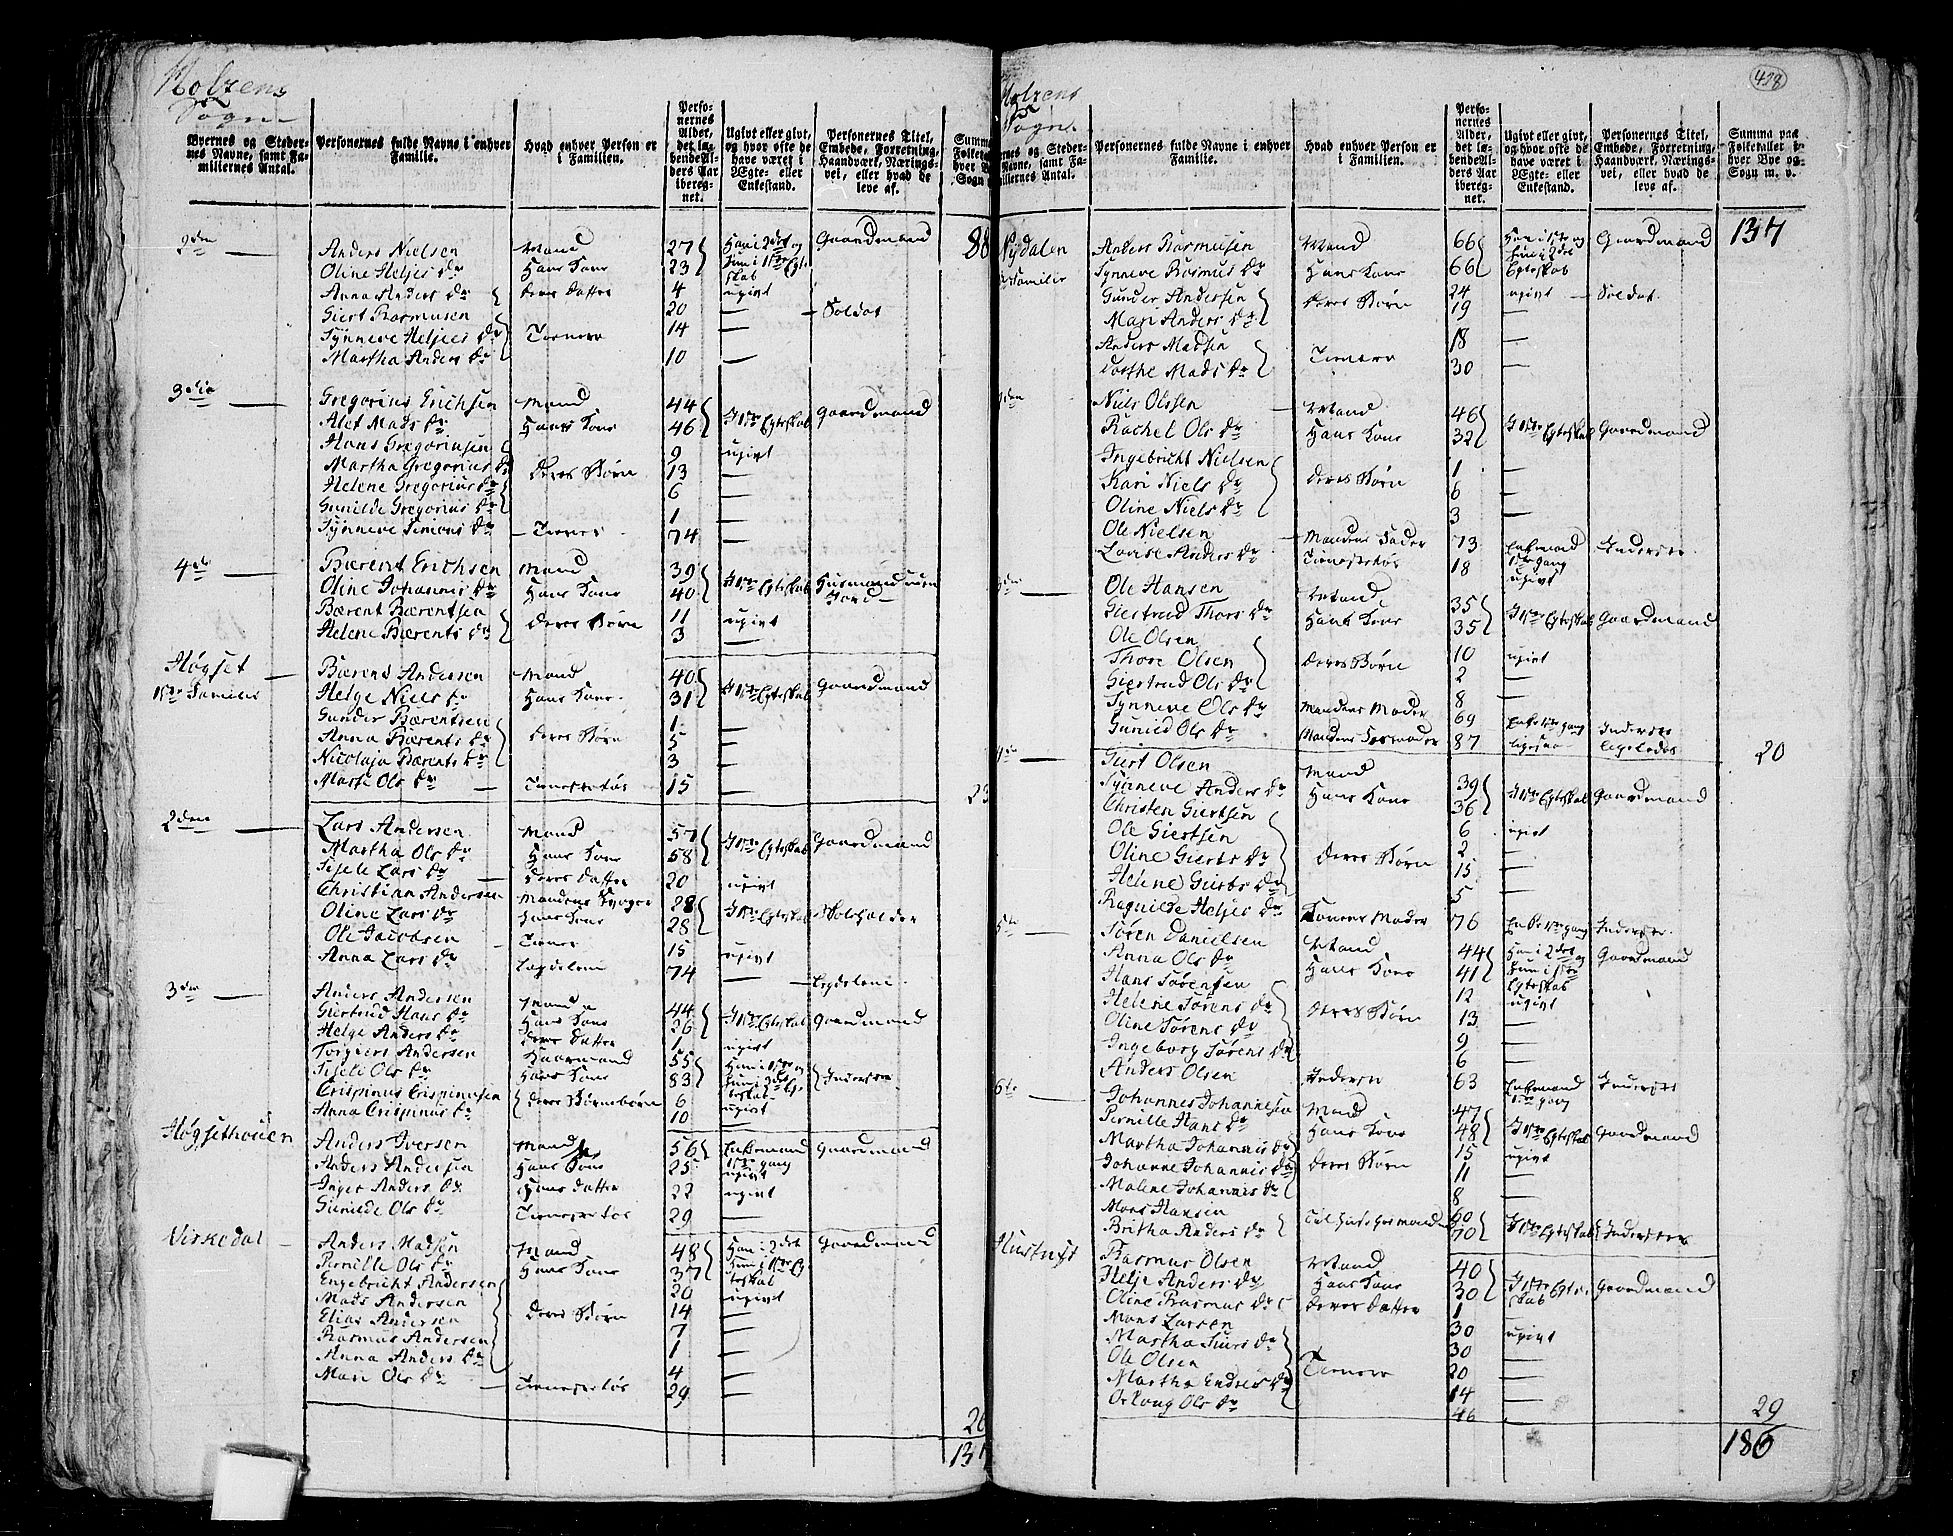 Holzens
Sogn
Byernes og Stedernes Navne, samt Familiernes Antal.
Personernes fulde Navne i enhver Familie.
Hvad enhver Person er i Familien.
Personernes Alder, det løbende Alders Aar iberegnet.
Ugivt eller givt, og hvor ofte de have været i Ægte- eller Enkestand.
Personernes Titel, Embede, Forretning, Haandværk, Næringsvei, eller hvad de leve af.
88
2den Anders Nielsen Mand 27 Han i 2det og Gaardmand
Oline Heljes Dr Hans Kone 23 Hun i 1ste Egteskab
Anna Anders Dr deres Datter 4 ugivt
Giert Rasmusen 20 — Soldat
Synneve Heljes Dr Tienere 14 —
Martha Anders Dr 10 —
3die Gregorius Erichsen Mand 44 I 1ste Egteskab Gaardmand
Alet Mads Dr Hans Kone 46
Hans Gregoriusen 9 ugivt
Martha Gregorius Dr deres Børn 13 —
Helene Gregorius Dr 6 —
Gunilde Gregorius Dr 1 —
Synneve Simons Dr Tiener 74 —
4de Bærent Erichsen Mand 39 I 1ste Egteskab Husmand uden Jord
Oline Johannis Dr Hans Kone 40
Bærent Bærentsen deres Børn 11 ugivt
Helene Bærents Dr 3 —
Høgset Bærend Andersen Mand 40 I 1ste Egteskab Gaardmand
1ste Familie Helge Niels Dr Hans Kone 31
Gunder Bærentsen 1 —
Anna Bærents Dr deres Børn 5 —
Nicolaja Bærents Dr 3 —
Marte Ols Dr Tienestetøs 15 —
23
2den Lars Andersen Mand 57 I 1ste Egteskab Gaardmand
Martha Ols Dr Hans Kone 58
Sisele Lars Dr deres Datter 20 ugivt
Christian Andersen Mandens Svoger 28 I 1ste Egteskab Skoleholder
Oline Lars Dr Hans Kone 28
Ole Jacobsen Tiener 15 ugivt
Anna Lars Dr Lægdslem 74 — Legdslem
3die Anders Andersen Mand 44 I 1ste Egteskab Gaardmand
Giertrud Hans Dr Hans Kone 26
Helge Anders Dr deres Datter 1 ugivt
Torgiers Andersen Kaarmand 55 Han i 1ste og Inderste
Sisele Ols Dr Hans Kone 83 Hun i 2det Egteskab
Crispinus Crispinusen deres Børnebørn 6 ugivt
Anna Crispinus Dr 10 —
Høgsethouen Anders Iversen Mand 56 Enkemand 1ste gang Gaardmand
Anders Andersen Hans Søn 25 ugivt
Inger Anders Dr Hans Datter 22 ugivt
Gunilde Ols Dr Tienestetøs 29 —
Virkedal Anders Madsen Mand 48 Han i 2det Gaardmand
Pernille Ols Dr Hans Kone 37 Hun i 1ste Egteskab
Engebricht Andersen 20 ugivt
Mads Andersen deres Børn 14 —
Elias Andersen 7 —
Rasmus Andersen 1 —
Anna Anders Dr 4 —
Mari Ols Dr Tienestetøs 29 —
26
137
428
Holzens
Sogn
Personernes fulde Navne i enhver Familie.
Hvad enhver Person er i Familien.
Personernes Alder, det løbende Alders Aar iberegnet.
Ugivt eller givt, og hvor ofte de have været i Ægte- eller Enkestand.
Personernes Titel, Embede, Forretning, Haandværk, Næringsvei, eller hvad de leve af.
Summa paa Folketallet i hver Bye og Sogn m. v.
137
Nydalen Anders Rasmusen Mand 66 Han i 1ste og Gaardmand
Familie Synneve Rasmus Dr Hans Kone 66 Hun i 2det Egteskab
Gunder Andersen deres Børn 24 ugivt — Soldat
Mari Anders Dr 19 —
Anders Madsen Tienere 18 —
Dorthe Mads Dr 30 —
Niels Olssen Mand 46 I 1ste Egteskab Gaardmand
Rachel Ols Dr Hans Kone 32
Ingebricht Nielsen 1 —
Kari Niels Dr deres Børn 6 —
Oline Niels Dr 3 —
Ole Nielsen Mandens Fader 73 Enkemand 1ste gang Inderste
Lovise Anders Dr Tienestetøs 18 ugivt
Ole Hansen Mand 35 I 1ste Egteskab Gaardmand
Giertrud Thors Dr Hans Kone 35
Ole Olsen 10 ugivt
Thore Olsen deres Børn 2 —
Giertrud Ols Dr 8 —
Synneve Ols Dr Mandens Moder 69 Enke 1ste gang Inderste
Gunild Ols Dr Mandens Formoder 87 ligesaa ligeledes
20
4de Giert Olsen Mand 39 I 1ste Egteskab Gaardmand
Synneve Anders Dr Hans Kone 36
Christen Giertsen 6 ugivt
Ole Giertsen deres Børn 2 —
Oline Gierts Dr 15 —
Helene Gierts Dr 5 —
Ragnilde Heljes Dr Konens Moder 76 Enke 1ste gang Inderste
5te Søren Danielsen Mand 44 Han i 2det og Gaardmand
Anna Ols Dr Hans Kone 41 Hun i 1ste Egteskab
Hans Sørensen 12 ugivt
Helene Sørens Dr deres Børn 13 —
Oline Sørens Dr 9 —
Ingeborg Sørens Dr 6 —
Anders Olsen Inderste 63 Enkemand 1ste gang Inderste
6te Johannes Johannesen Mand 47 I 1ste Egteskab Gaardmand
Pernille Hans Dr Hans Kone 48
Martha Johannis Dr 15 ugivt
Johanne Johannis Dr deres Børn 11 —
Malene Johannis Dr 8 —
Mons Hansen 60 I 1ste Egteskab Inderster
Britha Anders Dr 70
Hustnyt Rasmus Olsen Mand 40 I 1ste Egteskab Gaardmand
Helje Anders Dr Hans Kone 30
Oline Rasmus Dr deres Datter 1 —
Mons Larsen 30 ugivt
Martha Siurs Dr 30 —
Ole Olsen Tienere 20 —
Martha Endres Dr 14 —
Ols Dr 46 —
29
186